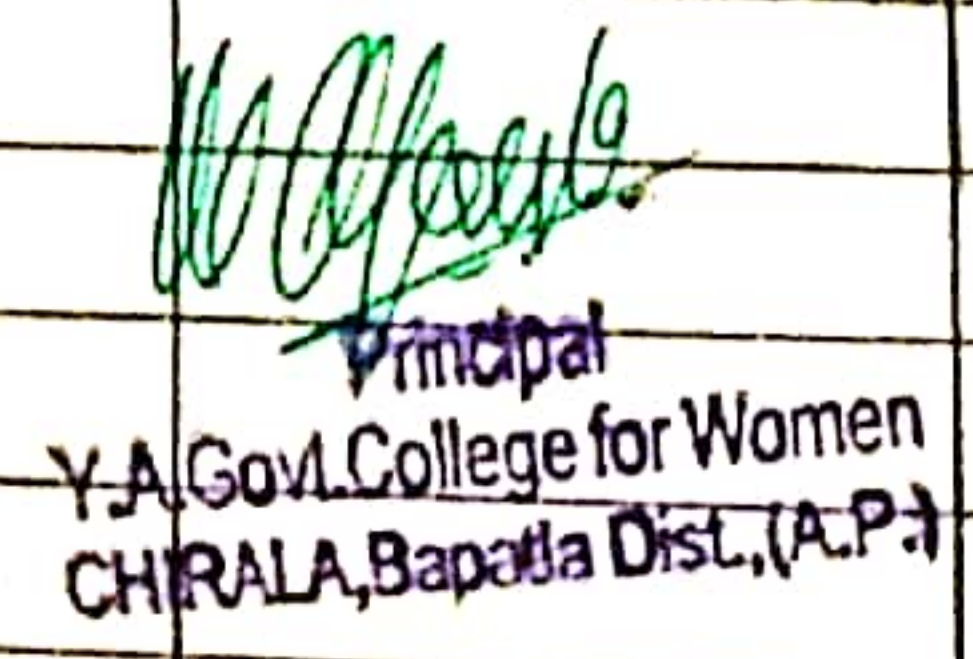 Principal
Y.A.Govt.College for Women
CHIRALA,Bapatla Dist.,(A.P.)